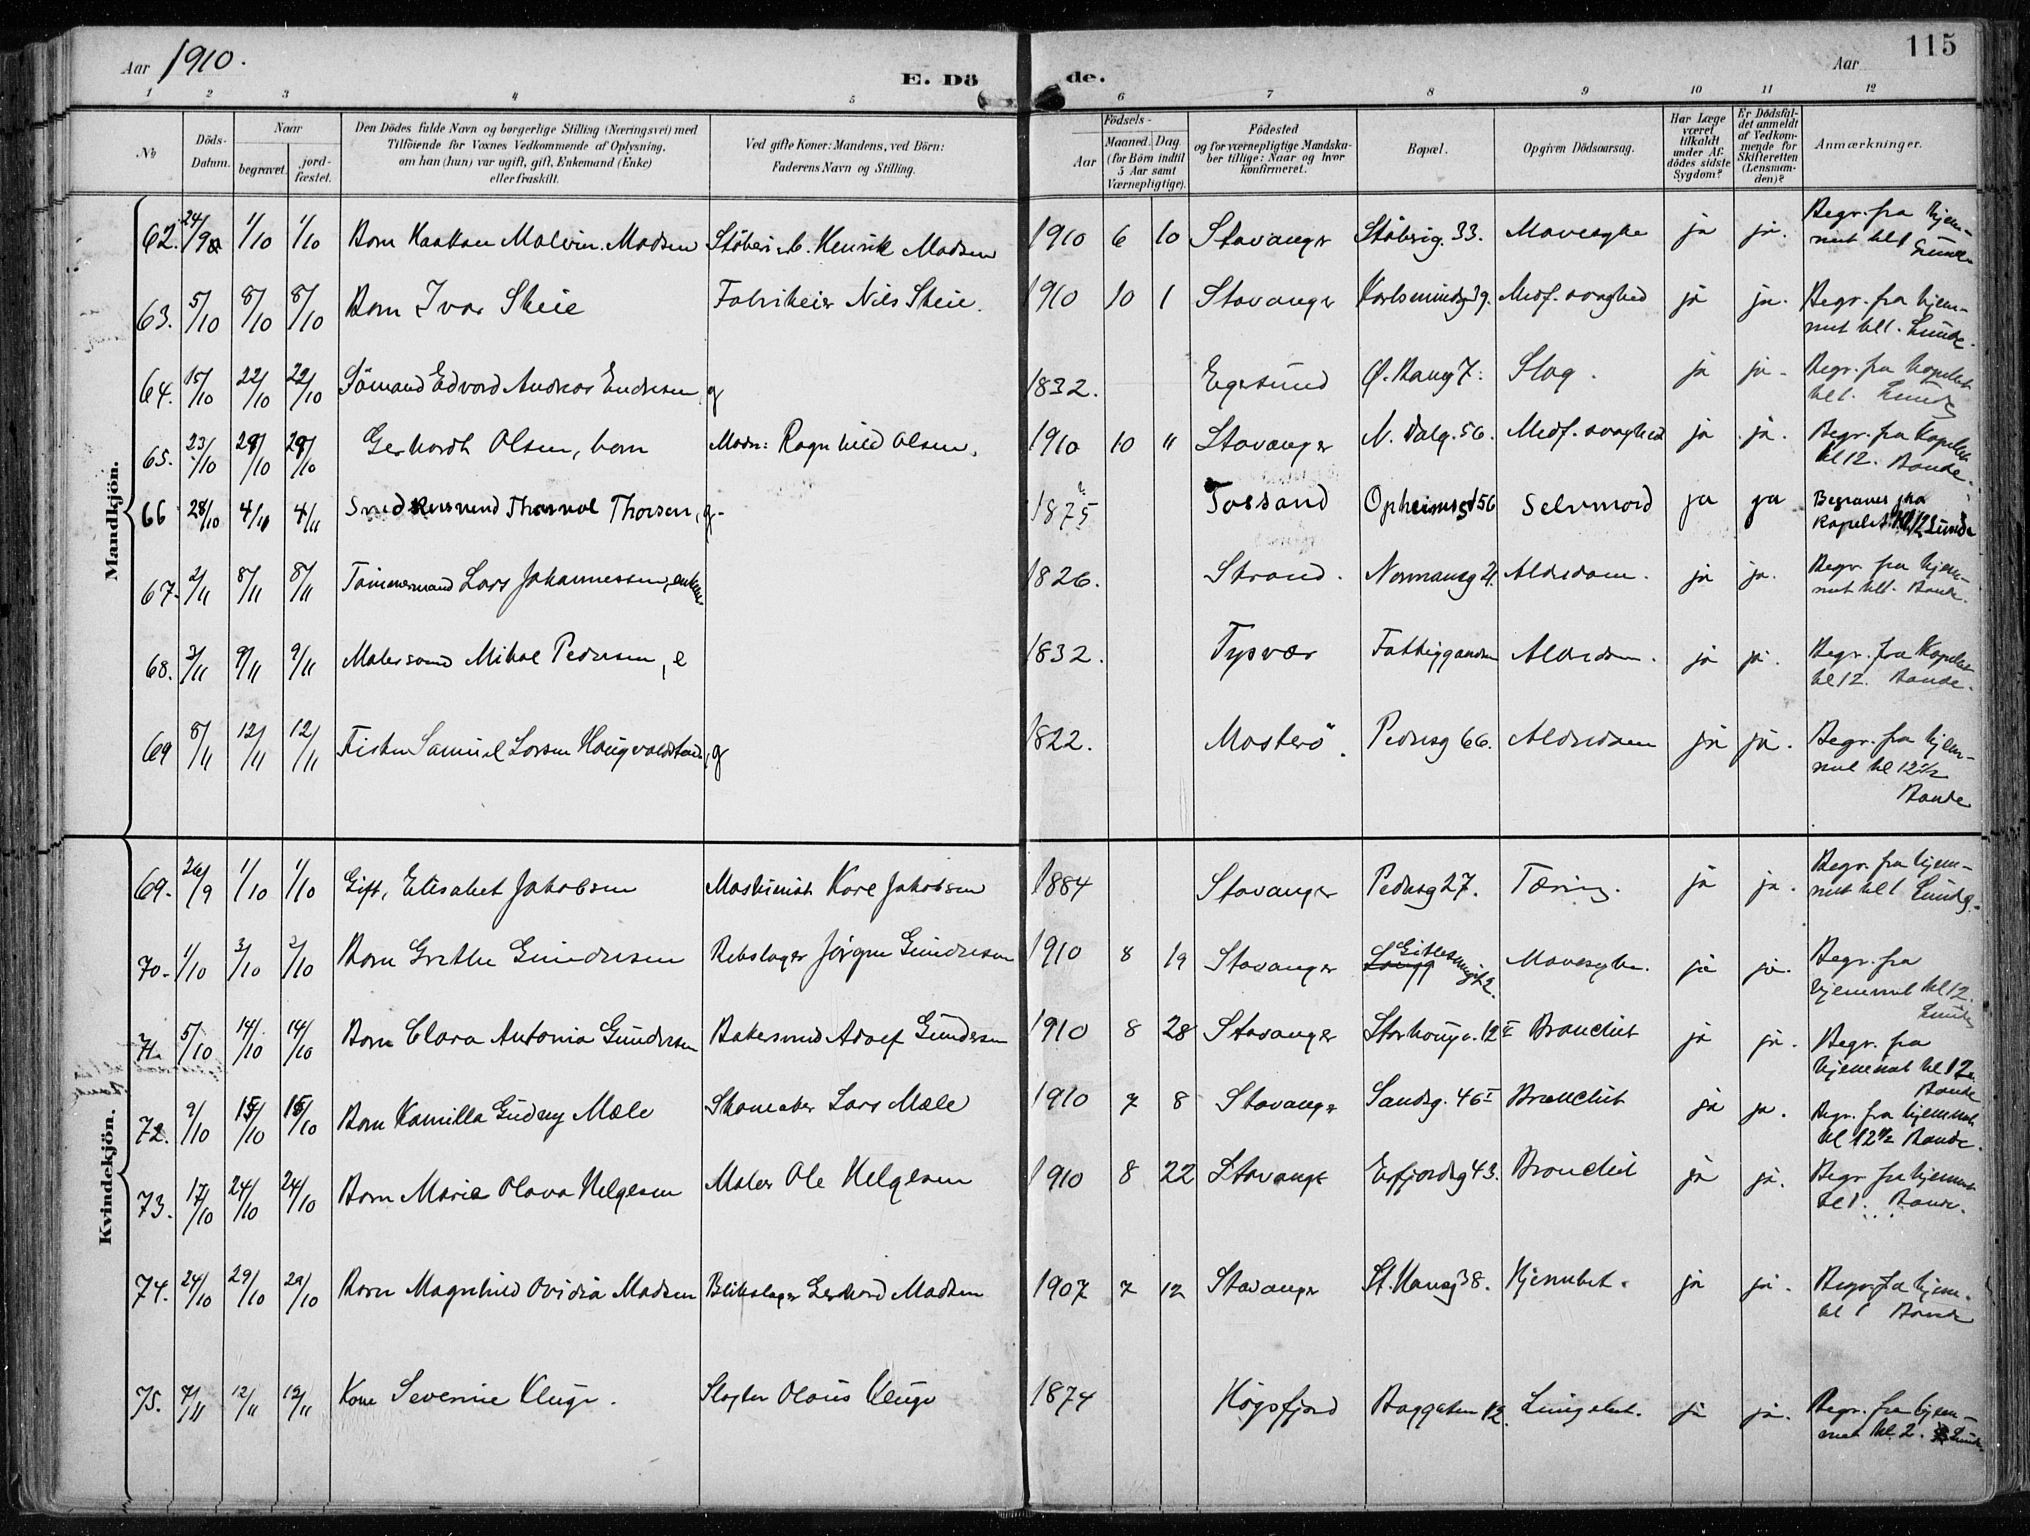 Aar 1910.
E. Dö
de.
Aar
115
1 2 3 4 5 6 7 8 9 10 11 12
№
Döds-Datum.
Naar
begravet.
jord-fæstet.
Den Dödes fulde Navn og borgerlige Stilling (Næringsvei) med
Tilföiende for Voxnes Vedkommende af Oplysning,
om han (hun) var ugift, gift, Enkemand (Enke)
eller fraskilt.
Ved gifte Koner: Mandens, ved Börn:
Faderens Navn og Stilling.
Födsels-
Aar
Maaned. Dag
(for Börn indtil
5 Aar samt
Værnepligtige).
Födested
og for værnepligtige Mandska-
ber tillige: Naar og hvor
konfirmeret.
Bopæl.
Opgiven Dödsaarsag.
Har Læge
været
tilkaldt
under Af-
dödes sidste
Sygdom?
Er Dödsfal-
det anmeldt
af Vedkom-
mende for
Skifteretten
(Lensman-
den)?
Anmærkninger.
Mandkjön.
62. 24/9 1/10 1/10 Barn Haakon Malvin Madsen Henrik Madsen 1910 6 10 Stavanger Støberig. 33. Mavesyke ja ja. Begr. fra hjem-
met kl 1 Lunde
63. 5/10 8/10 8/10 Barn Ivar Skeie Fabrikeier Nils Skeie. 1910 10 1 Stavanger Karlsmindeg 39. Medf. svaghed ja ja. Begr. fra hjem-
met kl 1. Lunde.
64. 15/10 22/10 22/10 Sömand Edvard Andreas Endresen, g 1832. Egersund Ø. Haug 7. Slag. ja ja. Begr. fra Kapellet
kl 1. Lunde
65. 23/10 29/10 29/10 Gerhardt Olsen, barn Modr: Ragnhild Olsen. 1910 10 " Stavanger N. Dalg. 56. Medf. svaghed ja ja. Begr. fra Kapellet
kl 12. Aande.
66 28/10 4/11 4/11 Thorsen, g. 1875 Fossand Opheimsgt 56 Selvmord ja ja Begraves fra
Kapellet kl 12 Lunde
67. 2/11 8/11 8/11 Tömmermand Lars Johannessen, enkem. 1826. Strand. Normansg 21. Alderdom. ja ja. Begr. fra hjem-
met kl 1. Aande.
68. 3/11 9/11 9/11 Malersvend Mikal Pedersen, e 1832. Tysvær Fattiggaarden Alderdom. ja ja. Begr. fra Kapellet
kl 12. Aande.
69 8/11 12/11 12/11 Fisker Samuel Larsen Haugvaldstad, g 1822. Mosterö. Pedersg 66. Alderdom ja ja. Begr. fra hjem-
met kl 12 1/2
Aande
Kvindekjön.
69. 26/9 1/10 1/10 Gift, Elisabet Jakobsen Maskinist Kare Jakobsen 1884 Stavanger Pedersg 27. Tæring. ja ja. Begr. fra hjem-
met kl 1 Lunde.
70. 1/10 3/10 3/10 Barn Grethe Gundersen Rebslager Jörgen Gundersen 1910 8 19 Stavanger Mavesyke. ja ja. Begr. fra
hjemmet kl 12.
Lunde
71. 5/10 14/10 14/10 Barn Clara Antonia Gundersen Bakersvend Adolf Gundersen 1910 8 28 Stavanger Storhougv. 12 II Bronchit ja ja. Begr. fra
hjemmet kl 12
Aande
72. 9/10 15/10 15/10 Barn Kamilla Gudny Mæle Skomaker Lars Mæle 1910 7 8 Stavanger Sandsg. 46 I Bronchit ja ja. Begr. fra hjemmet
kl 12 1/2 Aande.
73. 17/10 24/10 24/10 Barn Marie Olava Helgesen Maler Ole Helgesen 1910 8 22 Stavanger Erfjordsg 43. Bronchit ja ja. Begr fra hjemmet
kl 1. Aande.
74. 24/10 29/10 29/10 Barn Magnhild Ovidia Madsen Blikslager Gerhard Madsen 1907 7 12 Stavanger St. Hansg 38. Hjernebet. ja ja. Begr. fra hjem.
kl 1 Aande
75. 7/11 12/11 12/11 Kone Severine Kluge. Slagter Olaus Kluge 1874 Högsfjord Baggaten 12. Lungebet. ja ja. Begr. fra hjem-
met kl. 2. Lunde.